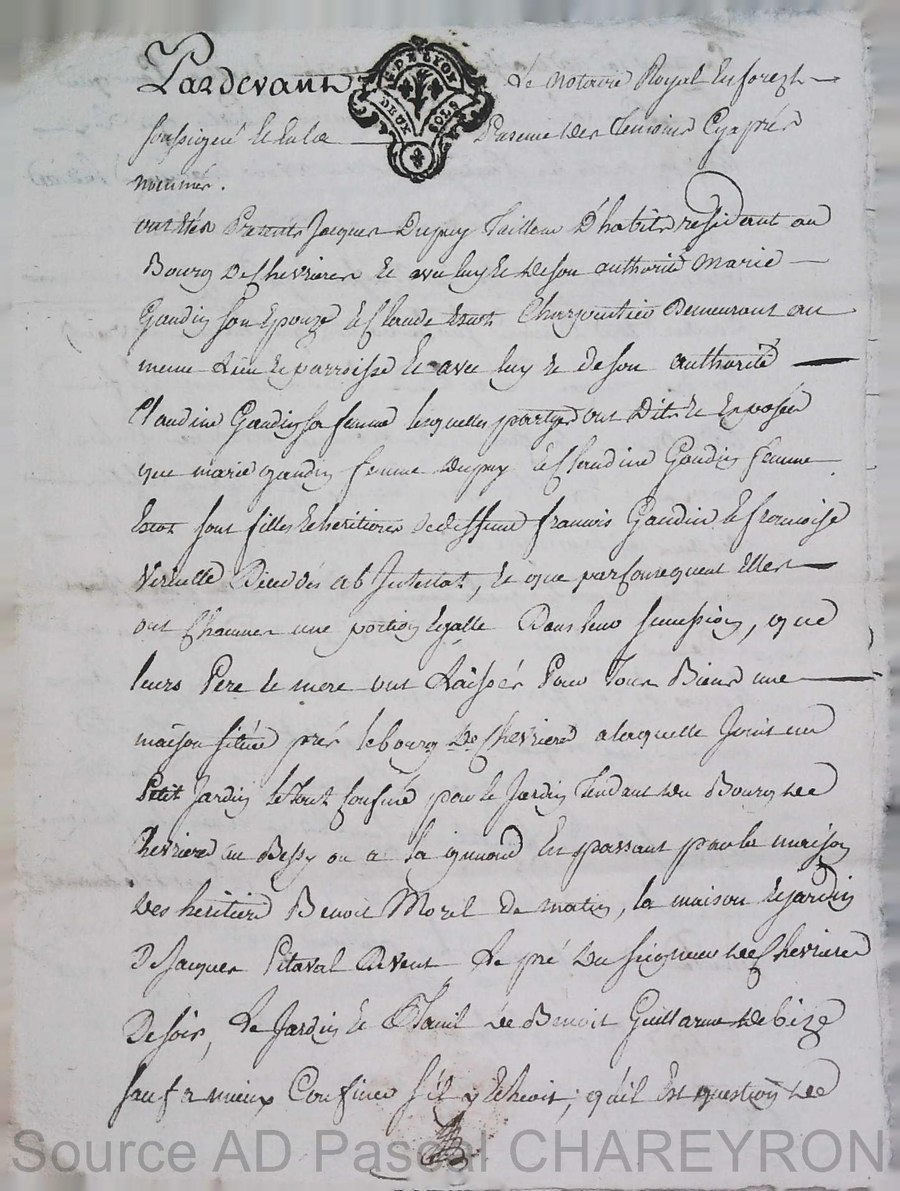 Pardevant Le Notaire Royal En forest
G. DE LYON
DEUX SOLS
soussigné Et En la Presence des Temoins Cy aprés
nommés.
ont étés Presents Jacques Dupuy Tailleur D'habits residant au
Bourg De Chevrieres Et avec luy Et de son authorité Marie
Gaudin son Epouze Et Claude Charpentier Demeurant au
meme Lieu Et parroisse Et avec luy Et de son authorité
Claudine Gaudin sa femme lesquelles partyes ont Dit Et Exposée
que marie gaudin femme Dupuy Et Claudine Gaudin femme
sont filles Et heritieres de deffunt francois Gaudin Et francoise
Decedés ab Intestat, Et que par Consequent Elles
ont Chacunes une portion Egalle Dans leur succession, que
leurs Pere Et mere ont Laissés Pour Tous Biens une
maison située prés le bourg De Chevrieres a laquelle Joint un
Petit Jardin le Tout Confiné par le Jardin Tendant du Bourg de
Chevrieres au Bessy ou a La gimond En passant par la maison
des heritiers Benoit Morel De matin, la maison Et jardin
De Jacques Pitaval De vent Le pré du seigneur de Chevrieres
De soir, Le Jardin Et de Benoit Guillarme de bize
sauf a mieux Confiner s'il y Echeoit; qu'il Est question de
Source AD Pascal CHAREYRON